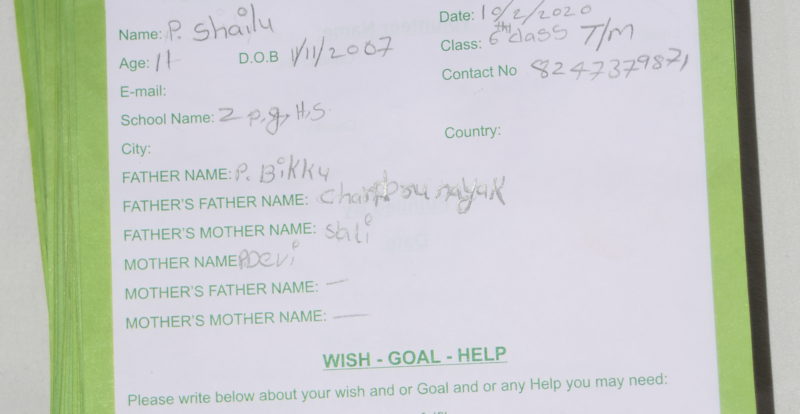 Name: P. Shailu Date: 10/2/2020
Age: 11 D.O.B 1/11/2007 Class: 6th class T/M
Contact No 8247379871
E-mail:
School Name: Z p.g, H.S
City: Country:
FATHER NAME: P. Bikku
FATHER'S FATHER NAME: nayak
FATHER'S MOTHER NAME: Stali
MOTHER NAME: P Devi
MOTHER'S FATHER NAME: —
MOTHER'S MOTHER NAME: —
WISH - GOAL - HELP
Please write below about your wish and or Goal and or any Help you may need: